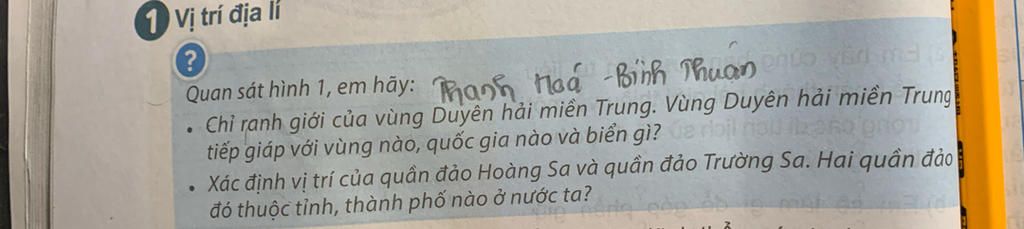 1 Vị trí địa lí
?
Quan sát hình 1, em hãy: Thanh Hoá - Bình Thuận
• Chỉ ranh giới của vùng Duyên hải miền Trung. Vùng Duyên hải miền Trung
tiếp giáp với vùng nào, quốc gia nào và biển gì?
• Xác định vị trí của quần đảo Hoàng Sa và quần đảo Trường Sa. Hai quần đảo
đó thuộc tỉnh, thành phố nào ở nước ta?